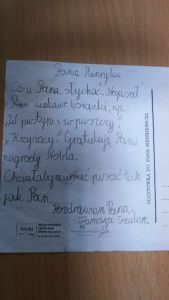 Panie Henryku
Co u Pana słychać. Napisał
Pan ciekawe książki, np.
"W pustyni i w puszczy"
"Krzyżacy". Gratuluję Panu
nagrody Nobla.
Chciałabym umieć pisać tak
jak Pan.
Pozdrawiam Pana
POCZTÓWKA DO PANA SIENKIEWICZA